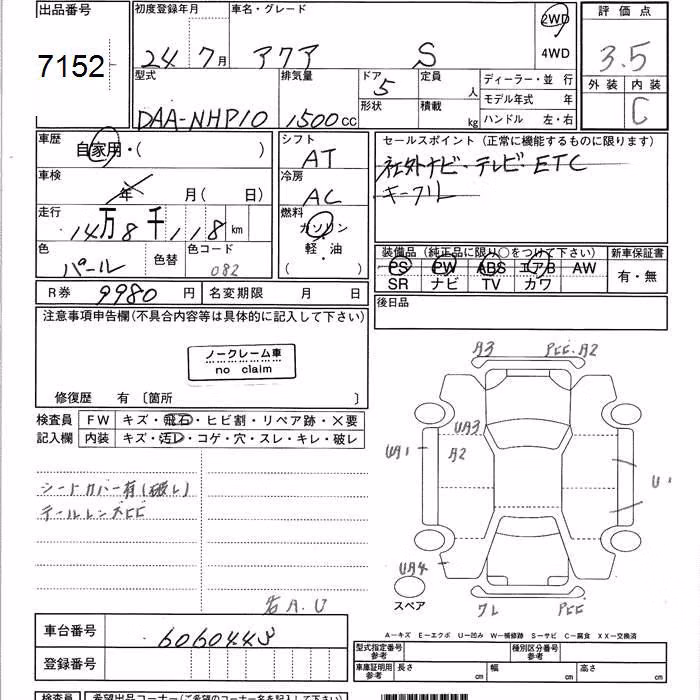 出品番号 7152
初度登録年月 24 7月
車名・グレード アクア S
2WD
4WD
評価点 3.5
外装 内装 C
型式 DAA-NHP10
排気量 1500cc
ドア 5
形状
定員 人
積載 kg
ディーラー・並行
モデル年式 年
ハンドル 左・右
車歴 自家用・( )
車検 年 月( 日)
走行 14万8千118km
色 パール
色替
色コード 082
シフト AT
冷房 AC
燃料 ガソリン
軽・油
( )
セールスポイント(正常に機能するものに限ります)
社外ナビ・テレビ・ETC
キーフリー
装備品(純正品に限り○をつけて下さい)
PS PW ABS エアB AW
SR ナビ TV カワ
新車保証書
有・無
R券 9980円
名変期限 月 日
後日品
注意事項申告欄(不具合内容等は具体的に記入して下さい)
ノークレーム車
no claim
修復歴 有 〔箇所 〕
検査員 FW キズ・飛石・ヒビ割・リペア跡・×要
記入欄 内装 キズ・汚レ・コゲ・穴・スレ・キレ・破レ
シートカバー有(破レ)
テールレンズCC
右A.U
A3 PCC.A2
UA3
UA1 A2
U
UA4
スペア
ワレ PCC
A-キズ E-エクボ U-凹み W-補修跡 S-サビ C-腐食 XX-交換済
車台番号 6060445
登録番号
型式指定番号 参考
種別区分番号 参考
車庫証明用 参考 長さ cm 幅 cm 高さ cm
検査員 希望出品コーナー(ご希望のコーナー名を記入して下さい)